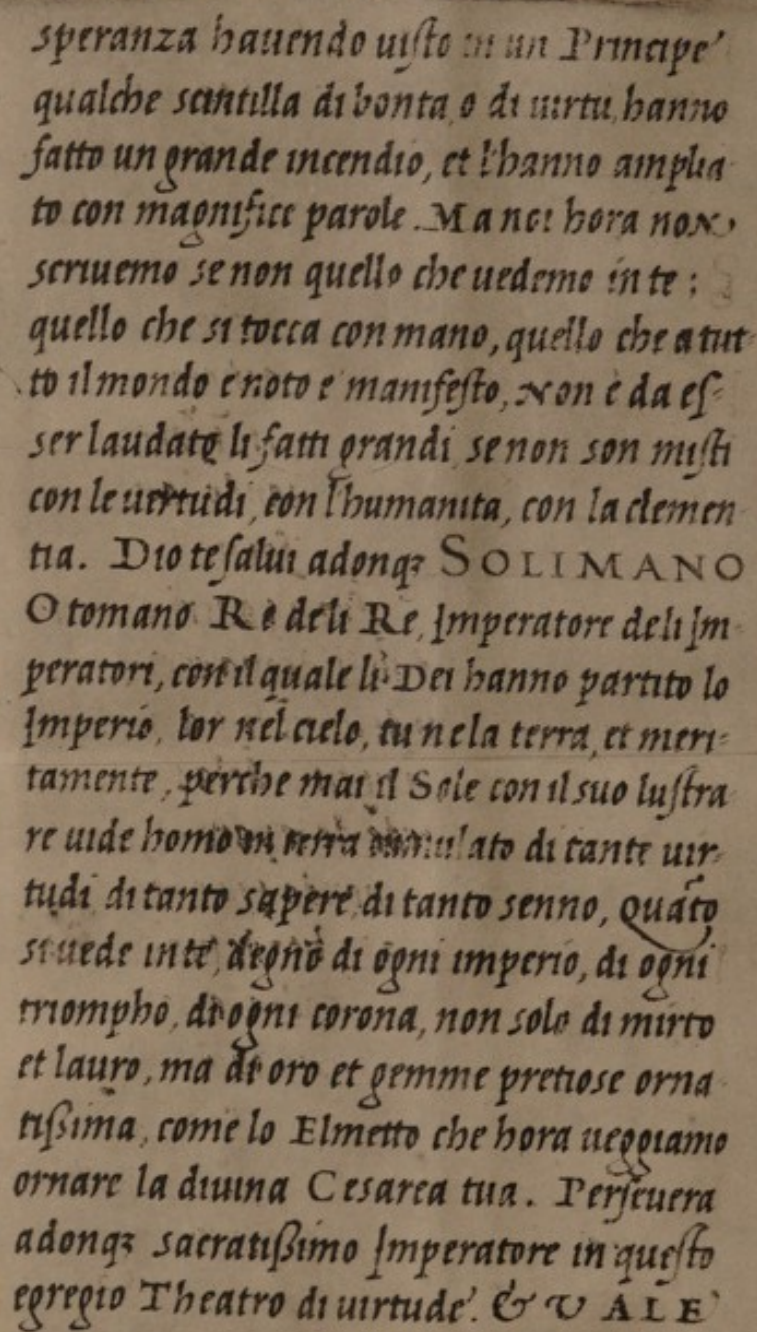 speranza hauendo uisto in un Principe
qualche scintilla di bonta, o di uirtu, hanno
fatto un grande incendio, et l'hanno amplia
to con magnifice parole. Ma noi hora non
scriuemo se non quello che uedemo in te:
quello che si tocca con mano, quello che a tut-
to il mondo e noto e manifesto, Non è da es-
ser laudato li fatti grandi se non son misti
con le uertudi, con l'humanita, con la clemen
tia. Dio te salui adonqꝫ SOLIMANO
Otomano Re deli Re, Imperatore deli Im-
peratori, con il quale li Dei hanno partito lo
Imperio, lor nel cielo, tu ne la terra, et meri-
tamente, perche mai il Sole con il suo lustra
re uide homo in terra di tante uir-
tudi di tanto sapere di tanto senno, Quãto
si uede in te, degno di ogni imperio, di ogni
triompho, di ogni corona, non solo di mirto
et lauro, ma di oro et gemme pretiose orna
tißima, come lo Elmetto che hora ueggiamo
ornare la diuina Cesarea tua. Perseuera
adonqꝫ sacratißimo Imperatore in questo
egregio Theatro di uirtude. & VALE